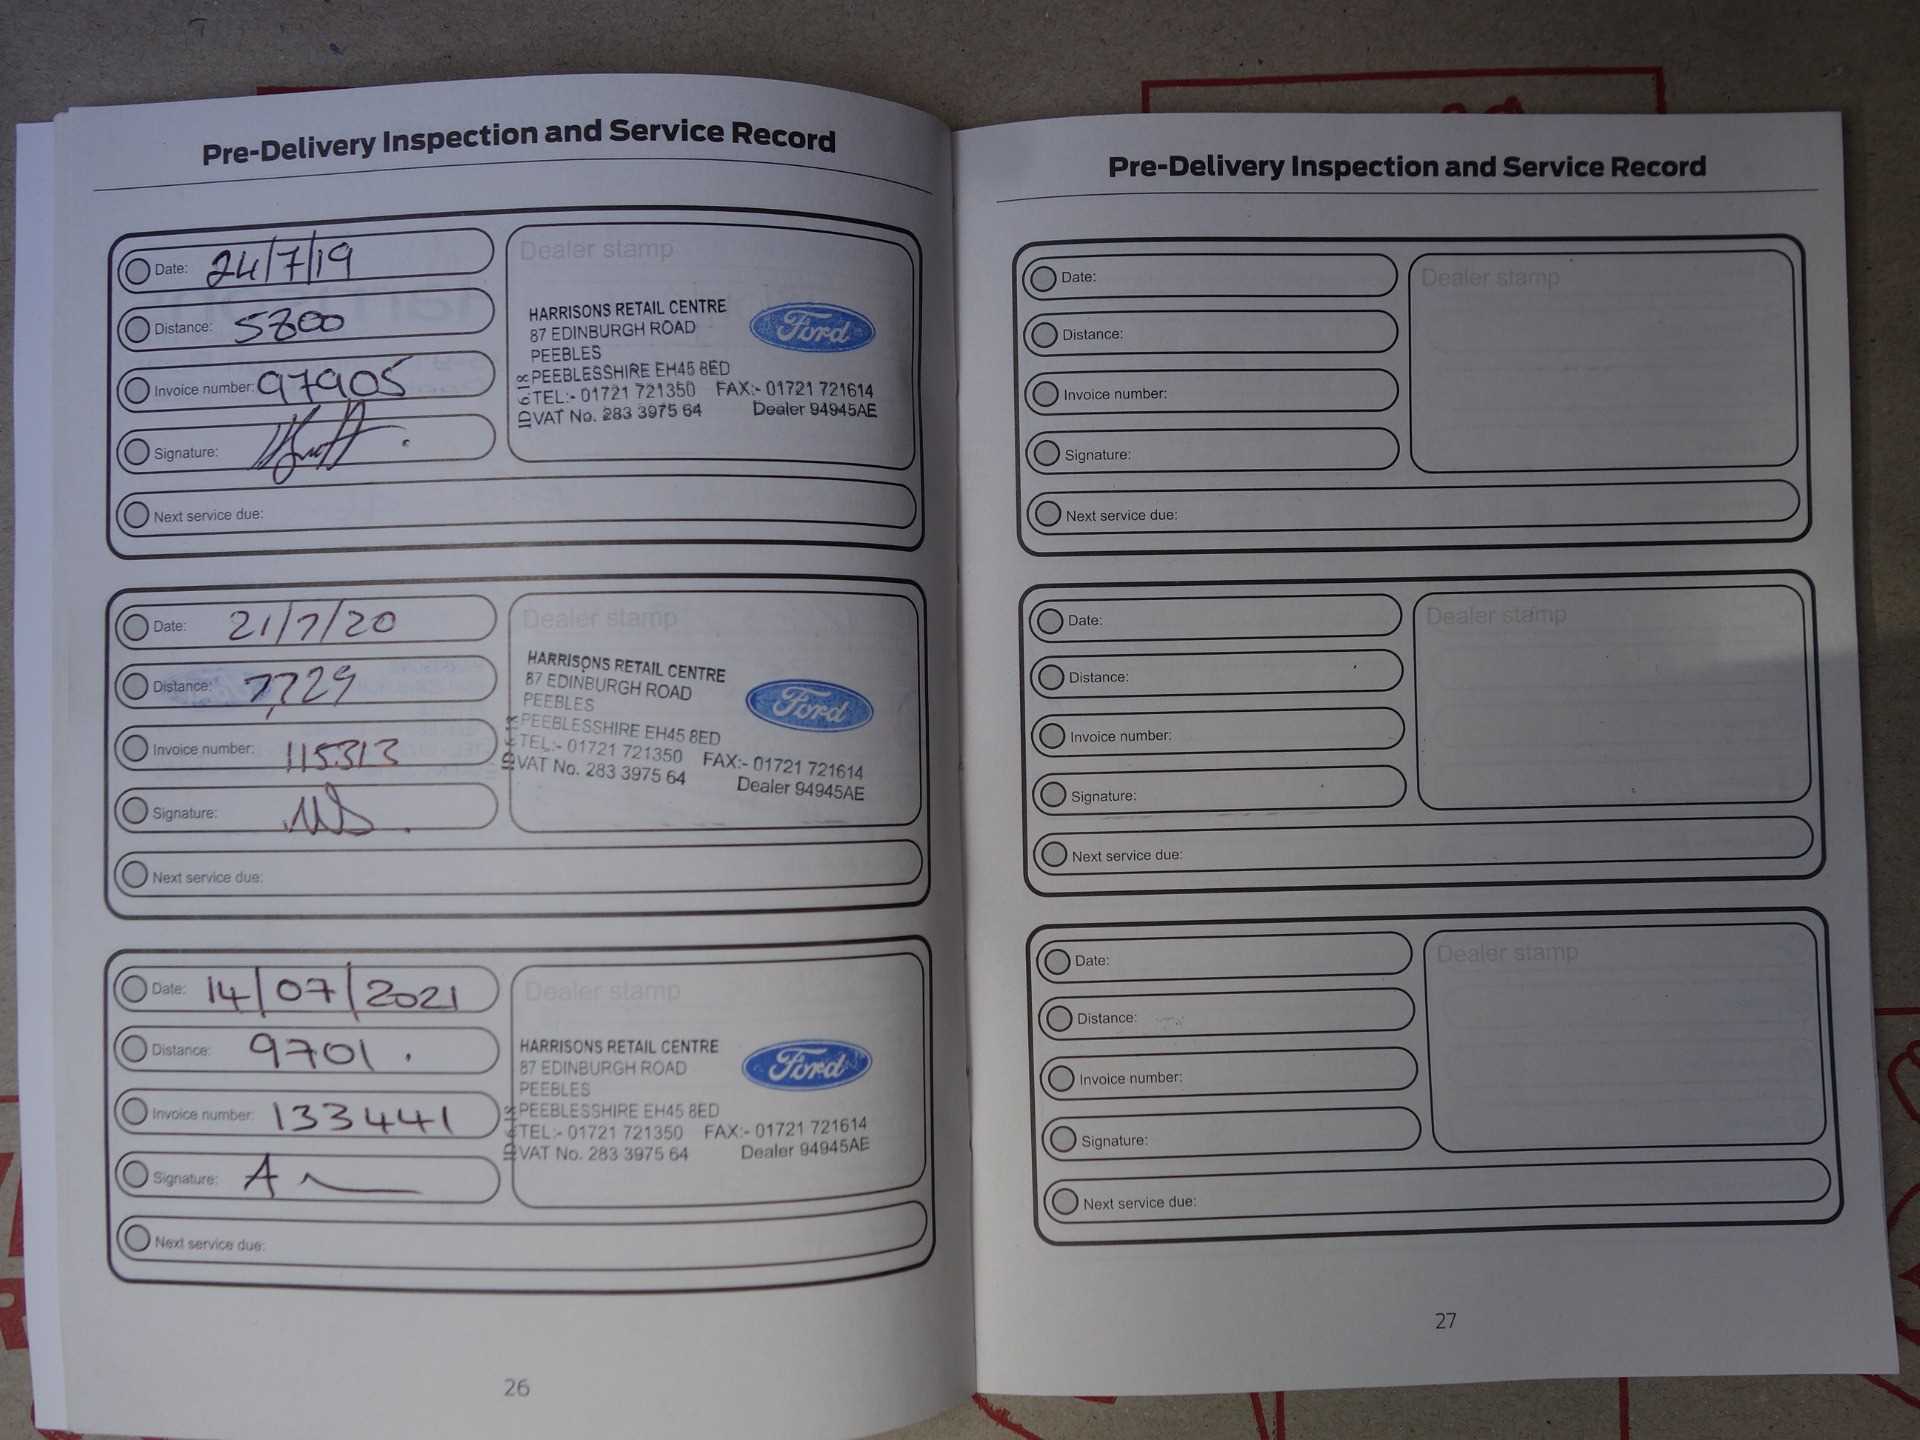 Pre-Delivery Inspection and Service Record
Date: 24/7/19
Distance: 5800
Invoice number: 97905
Signature:
Next service due:
Dealer stamp
HARRISONS RETAIL CENTRE
87 EDINBURGH ROAD
PEEBLES
PEEBLESSHIRE EH45 8ED
TEL:- 01721 721350 FAX:- 01721 721614
VAT No. 283 3975 64 Dealer 94945AE
Ford
Date: 21/7/20
Distance: 7,729
Invoice number: 115313
Signature:
Next service due:
Dealer stamp
HARRISONS RETAIL CENTRE
87 EDINBURGH ROAD
PEEBLES
PEEBLESSHIRE EH45 8ED
TEL:- 01721 721350 FAX:- 01721 721614
VAT No. 283 3975 64 Dealer 94945AE
Ford
Date: 14/07/2021
Distance: 9701.
Invoice number: 133441
Signature:
Next service due:
Dealer stamp
HARRISONS RETAIL CENTRE
87 EDINBURGH ROAD
PEEBLES
PEEBLESSHIRE EH45 8ED
TEL:- 01721 721350 FAX:- 01721 721614
VAT No. 283 3975 64 Dealer 94945AE
Ford
26
Pre-Delivery Inspection and Service Record
Date:
Distance:
Invoice number:
Signature:
Next service due:
Dealer stamp
Date:
Distance:
Invoice number:
Signature:
Next service due:
Dealer stamp
Date:
Distance:
Invoice number:
Signature:
Next service due:
Dealer stamp
27